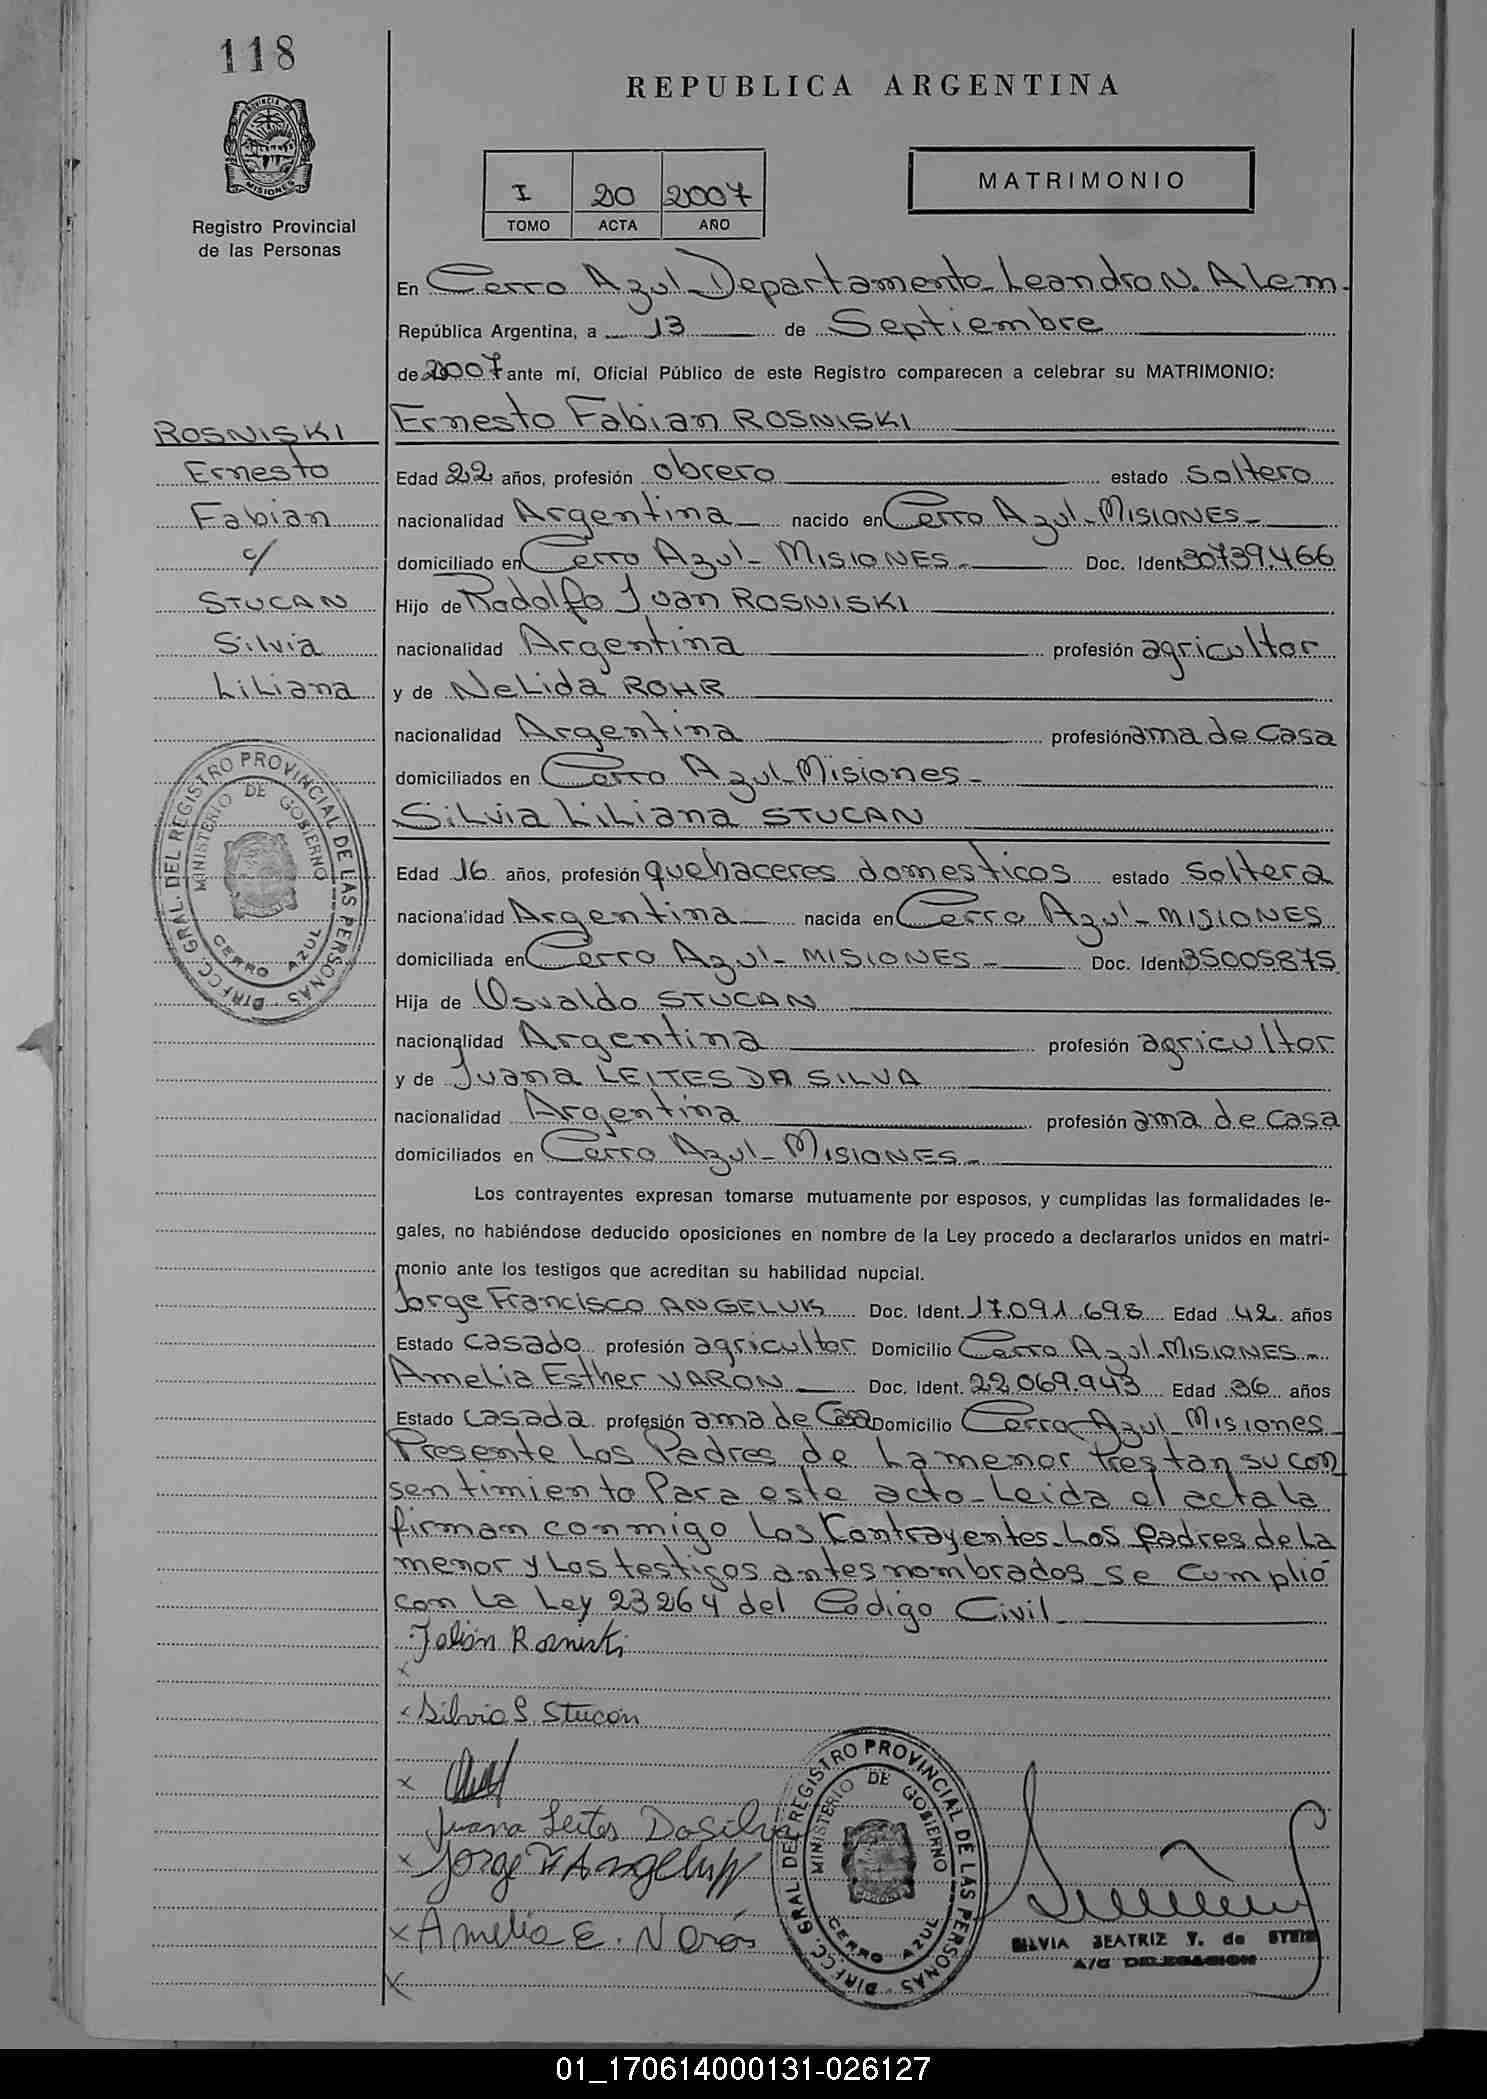 118
PROVINCIA D
MISIONES
Registro Provincial
de las Personas
REPUBLICA ARGENTINA
I 20 2007
TOMO ACTA AÑO
MATRIMONIO
En Cerro Azul - Departamento Leandro N. Alem -
República Argentina, a 13 de Septiembre
de 2007 ante mí, Oficial Público de este Registro comparecen a celebrar su MATRIMONIO:
Ernesto Fabian ROSNISKI
ROSNISKI
Ernesto
Fabian
c/
STUCAN
Silvia
Liliana
Edad 22 años, profesión obrero estado soltero
nacionalidad Argentina nacido en Cerro Azul - MISIONES -
domiciliado en Cerro Azul - MISIONES - Doc. Ident. 30739.466
Hijo de Rodolfo Juan ROSNISKI
nacionalidad Argentina profesión agricultor
y de Nelida ROHR
nacionalidad Argentina profesión ama de casa
domiciliados en Cerro Azul - Misiones -
Silvia Liliana STUCAN
Edad 16 años, profesión quehaceres domesticos estado soltera
nacionalidad Argentina nacida en Cerro Azul - MISIONES
domiciliada en Cerro Azul - MISIONES - Doc. Ident. 35005875
Hija de Osvaldo STUCAN
nacionalidad Argentina profesión agricultor
y de Juana LEITES DA SILVA
nacionalidad Argentina profesión ama de casa
domiciliados en Cerro Azul - MISIONES -
DIRECC. GRAL. DEL REGISTRO PROVINCIAL DE LAS PERSONAS
MINISTERIO DE GOBIERNO
CERRO AZUL
Los contrayentes expresan tomarse mutuamente por esposos, y cumplidas las formalidades le-
gales, no habiéndose deducido oposiciones en nombre de la Ley procedo a declararlos unidos en matri-
monio ante los testigos que acreditan su habilidad nupcial.
Jorge Francisco ANGELUK Doc. Ident. 17.091.698 Edad 42 años
Estado casado profesión agricultor Domicilio Cerro Azul - MISIONES -
Amelia Esther VARON Doc. Ident. 22.069.943 Edad 36 años
Estado casada profesión ama de Casa Domicilio Cerro Azul Misiones
Presente Los Padres de La menor Prestan su con
sentimiento Para este acto - Leida el acta la
firman conmigo Los Contrayentes - Los padres de La
menor y Los testigos antes nombrados - se cumplió
con La Ley 23264 del Codigo Civil
Fabián Rosniski
x Silvia L Stucan
x
Juana Leites Da Silva
x Jorge F Angeluk
x Amelia E. Varón
x
DIRECC. GRAL. DEL REGISTRO PROVINCIAL DE LAS PERSONAS
MINISTERIO DE GOBIERNO
CERRO AZUL
SILVIA BEATRIZ Y. de STEIN
A/C DELEGACION
01_170614000131-026127